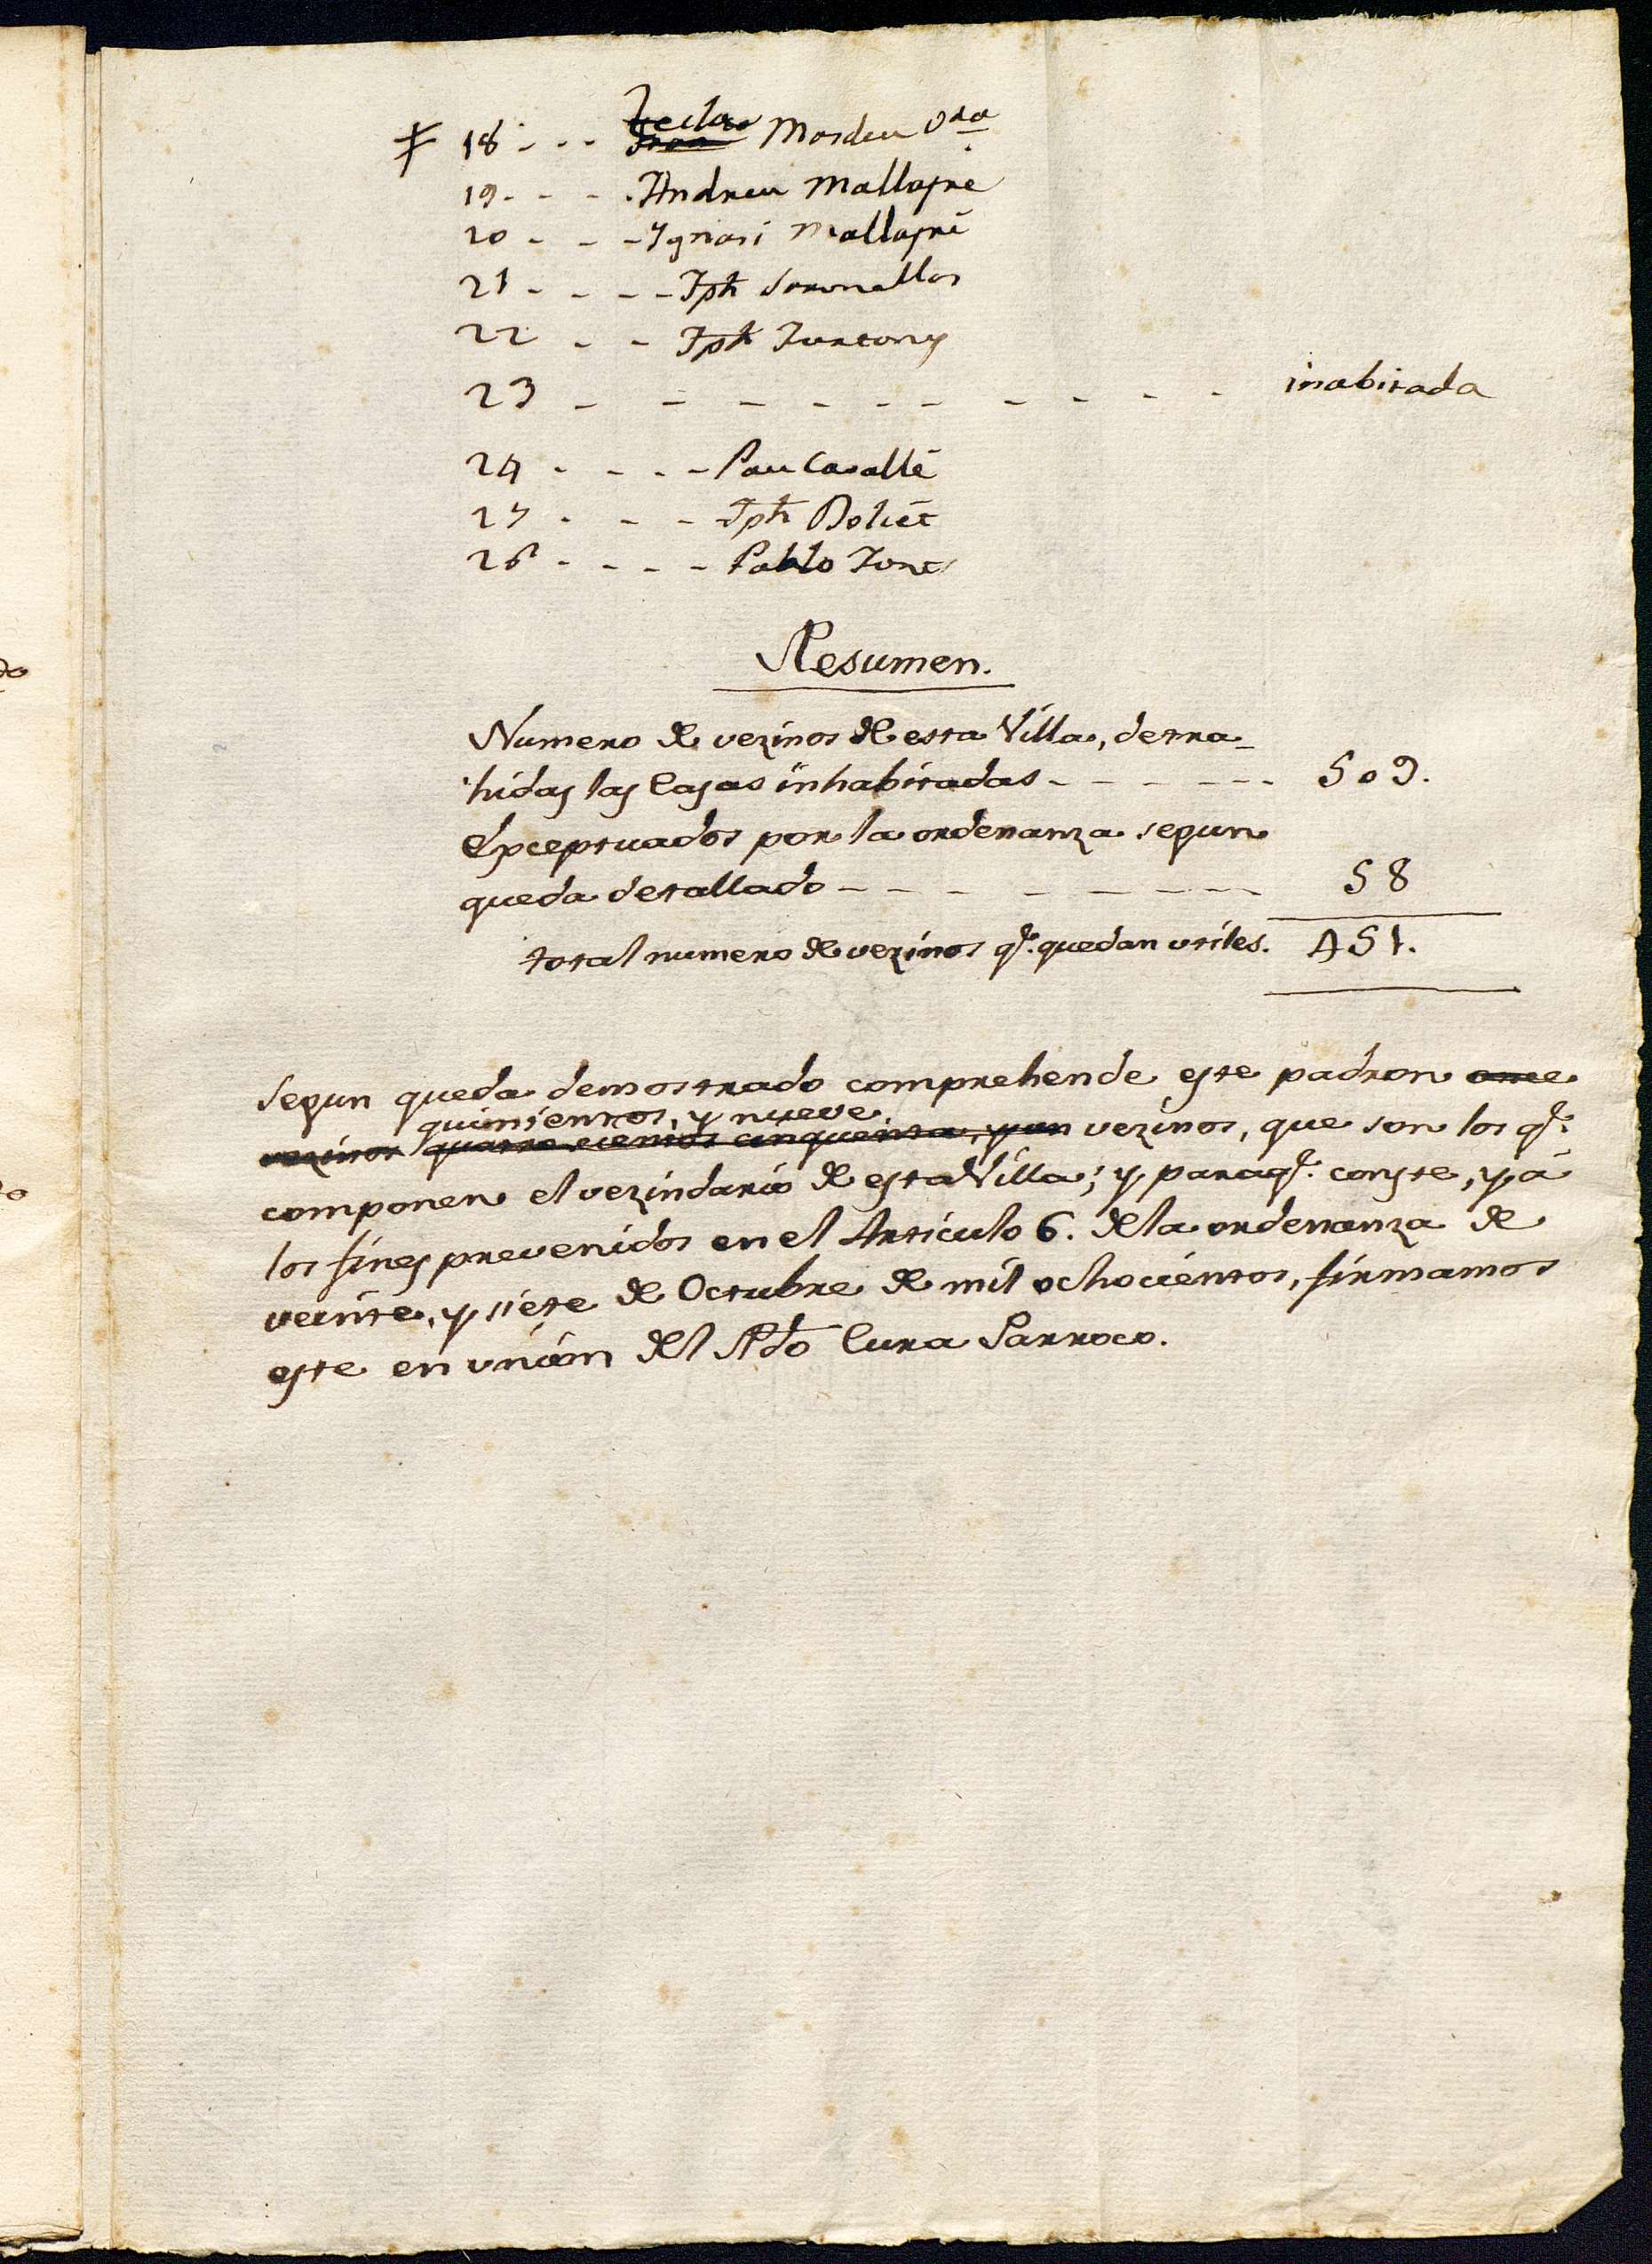 18 - - - Tecla Masdeu Vda
19 - - - Andreu Mallafré
20 - - - Ygnasi Mallafré
21 - - - - Jph Soronellas
22 - - Jph
23 - - - - - - - - - - inabitada
24 - - - - Pau Cavallé
25 - - - Jph
26 - - - - Pablo
Resumen.
Numero de vezinos de esta Villa, detra-
hidas las Casas inhabitadas - - - - - - 509.
Exceptuados por la ordenanza segun
queda detallado - - - - - - - - 58
total numero de vezinos qe. quedan utiles. 451.
Segun queda demostrado comprehende este padron
quinientos, y nueve
vezinos quatro cientos cinquenta, y un vezinos, que son los qe.
componen el vezindario de esta Villa; y paraqe. conste, y á
los fines prevenidos en el Articulo 6. dela ordenanza de
veinte, y siete de Octubre de mil ochocientos, firmamos
este en union del Rdo Cura Parroco.